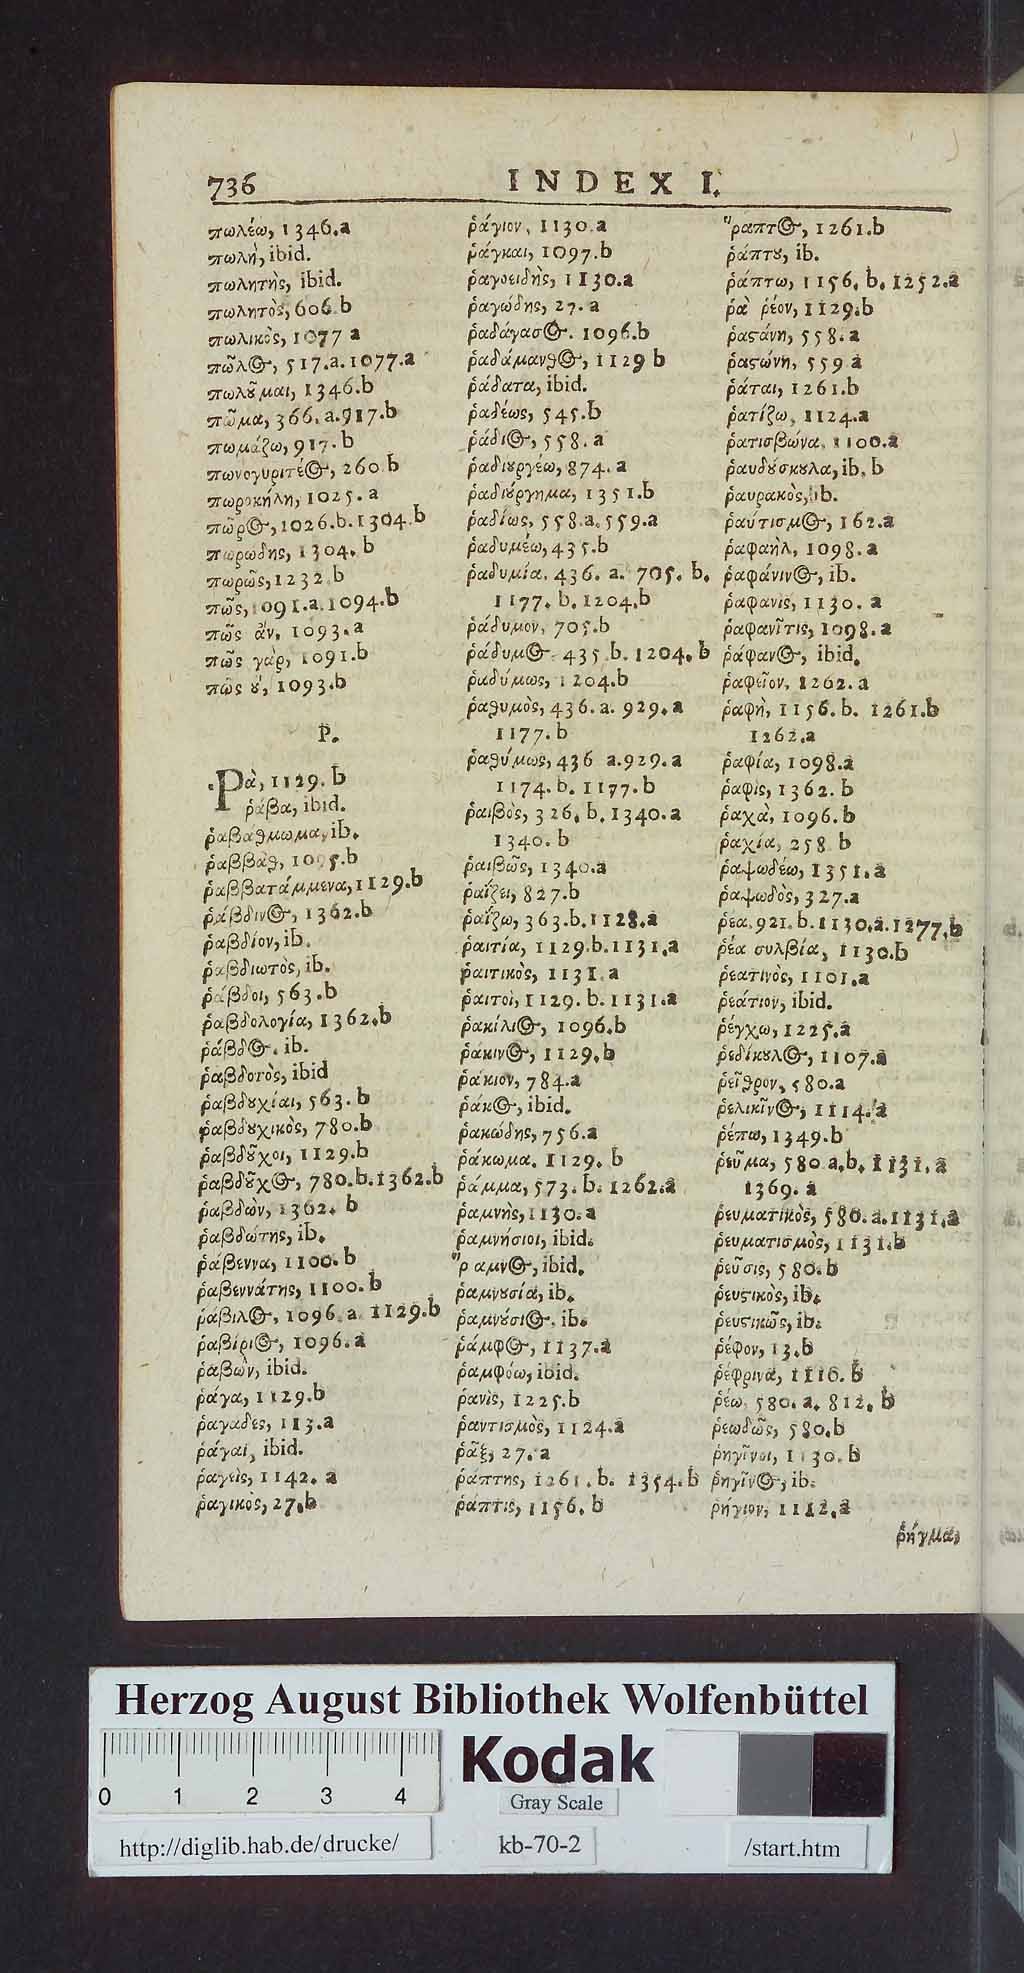 736 INDEX I.
πωλέω, 1346.a
πωλὴ, ibid.
πωλητὴς, ibid.
πωλητὸς, 606.b
πωλικὸς, 1077 a
πῶλος, 517.a.1077.a
πωλοῦμαι, 1346.b
πῶμα, 366.a.917.b
πωμάζω, 917.b
πωνογυριτέος, 260 b
πωροκήλη, 1025.a
πῶρος, 1026.b.1304.b
πωρώδης, 1304. b
πωρῶς, 1232.b
πῶς, 1091.a.1094.b
πῶς ἀν, 1093.a
πῶς γὰρ, 1091.b
πῶς ȣ', 1093.b
Ρ.
Ρὰ, 1129. b
ῥάβα, ibid.
ῥαβάθμωμα, ib.
ῥαββὰθ, 1095.b
ῥαββατάμμενα, 1129.b
ῥάβδινος, 1362.b
ῥαβδίον, ib.
ῥαβδιωτὸς, ib.
ῥάβδοι, 563.b
ῥαβδολογία, 1362.b
ῥάβδος. ib.
ῥαβδοτὸς, ibid
ῥαβδȣχίαι, 563. b
ῥαβδȣχικὸς, 780.b
ῥαβδȣ͂χοι, 1129.b
ῥαβδȣ͂χος, 780.b.1362.b
ῥαβδὼν, 1362. b
ῥαβδώτης, ib.
ῥάβεννα, 1100. b
ῥαβεννάτης, 1100. b
ῥάβιλος, 1096. a. 1129.b
ῥαβίριος, 1096.a
ῥαβὼν, ibid.
ῥάγα, 1129.b
ῥαγαδες, 113.a
ῥάγαι, ibid.
ῥαγεὶς, 1142. a
ῥαγικὸς, 27.b
ῥάγιον, 1130.a
ῥάγκαι, 1097.b
ῥαγοειδὴς, 1130.a
ῥαγώδης, 27. a
ῥαδάγασος. 1096.b
ῥαδάμανθος, 1129 b
ῥάδατα, ibid.
ῥαδέως, 545.b
ῥάδιος, 558. a
ῥαδιȣργέω, 874. a
ῥαδιȣ́ργημα, 1351.b
ῥαδίως, 558.a.559.a
ῥαδυμέω, 435.b
ῥαδυμία. 436. a. 705. b.
1177. b. 1204.b
ῥάδυμον, 705.b
ῥάδυμος. 435.b. 1204. b
ῥαδύμως, 1204.b
ῥαθυμὸς, 436. a. 929.a
1177. b
ῥαθύμως, 436 a.929.a
1174. b. 1177.b
ῥαιβὸς, 326. b. 1340.a
1340. b
ῥαιβῶς, 1340.a
ῥαΐζει, 827.b
ῥαΐζω, 363.b.1128.a
ῥαιτία, 1129.b.1131.a
ῥαιτικὸς, 1131.a
ῥαιτοὶ, 1129. b. 1131.a
ῥακίλιος, 1096.b
ῥάκινος, 1129.b
ῥάκιον, 784.a
ῥάκος, ibid.
ῥακώδης, 756.a
ῥάκωμα. 1129. b
ῥάμμα, 573. b. 1262.a
ῥαμνὴς, 1130.a
ῥαμνήσιοι, ibid.
῞ραμνος, ibid.
ῥαμνȣσία, ib.
ῥαμνȣ́σιος. ib.
ῥάμφος, 1137.a
ῥαμφόω, ibid.
ῥανὶς, 1225.b
ῥαντισμὸς, 1124.a
ῥᾶξ, 27. a
ῥάπτης, 1261. b. 1354. b
ῥάπτις, 1156. b
῞ραπτος, 1261.b
ῥάπτȣ, ib.
ῥάπτω, 1156. b. 1252.a
ῥᾶ ῥέον, 1129.b
ῥαϛάνη, 558. a
ῥαϛώνη, 559 a
ῥάται, 1261.b
ῥατίζω, 1124.a
ῥατισβώνα. 1100.a
ῥαυδȣ́σκυλα, ib. b
ῥαυρακὸς, ib.
ῥαύτισμος, 162.a
ῥαφαὴλ, 1098. a
ῥαφάνινος, ib.
ῥαφανὶς, 1130. a
ῥαφανῖτις, 1098. a
ῥάφανος, ibid.
ῥαφεῖον, 1262. a
ῥαφὴ, 1156. b. 1261.b
1262.a
ῥαφία, 1098.a
ῥαφὶς, 1362. b
ῥαχὰ, 1096.b
ῥαχία, 258. b
ῥαψωδέω, 1351.a
ῥαψωδὸς, 327.a
ῥέα. 921. b. 1130.a. 1277.b
ῥέα συλβία, 1130.b
ῥεατινὸς, 1101.a
ῥεάτιον, ibid.
ῥέγχω, 1225.a
ῥεδίκȣλος, 1107.a
ῥεῖθρον, 580.a
ῥελικῖνος, 1114. a
ῥέπω, 1349.b
ῥεῦμα, 580 a.b. 1131. a
1369. a
ῥευματικὸς, 580. a.1131.a
ῥευματισμὸς, 1131.b
ῥεῦσις, 580.b
ῥευϛικὸς, ib.
ῥευϛικῶς, ib.
ῥέφον, 13.b
ῥέφρινα, 1116. b
ῥέω, 580. a. 812. b
ῥεωδῶς, 580.b
ῥηγῖνοι, 1130. b
ῥηγῖνος, ib.
ῥήγιον, 1112.a
ῥήγμα,
Herzog August Bibliothek Wolfenbüttel
0 1 2 3 4
Kodak
Gray Scale
http://diglib.hab.de/drucke/
kb-70-2
/start.htm